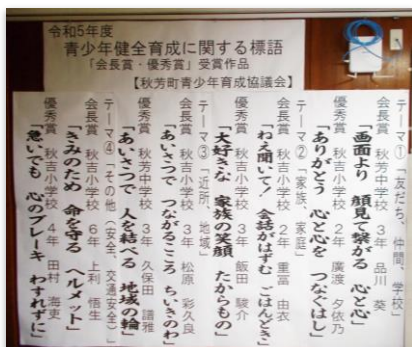 令和5年度
青少年健全育成に関する標語
「会長賞・優秀賞」受賞作品
【秋芳町青少年育成協議会】
テーマ①「友だち、仲間、学校」
会長賞 秋芳中学校 3年 品川 葵
「画面より 顔見て繋がる 心と心」
優秀賞 秋吉小学校 2年 廣渡 夕依乃
「ありがとう 心と心を つなぐはし」
テーマ②「家族、家庭」
会長賞 秋吉小学校 2年 重冨 由衣
「ねえ聞いて! 会話がはずむ ごはんどき」
優秀賞 秋芳中学校 3年 飯田 駿介
「大好きな 家族の笑顔 たからもの」
テーマ③「近所、地域」
会長賞 秋吉小学校 3年 松原 彩久良
「あいさつで つながるこころ ちいきのわ」
優秀賞 秋芳中学校 3年 久保田 譜雅
「あいさつで 人を結べる 地域の輪」
テーマ④「その他(安全、交通安全)」
会長賞 秋吉小学校 6年 上利 悟生
「きみのため 命を守る ヘルメット」
優秀賞 秋吉小学校 4年 田村 海吏
「急いでも 心のブレーキ わすれずに」